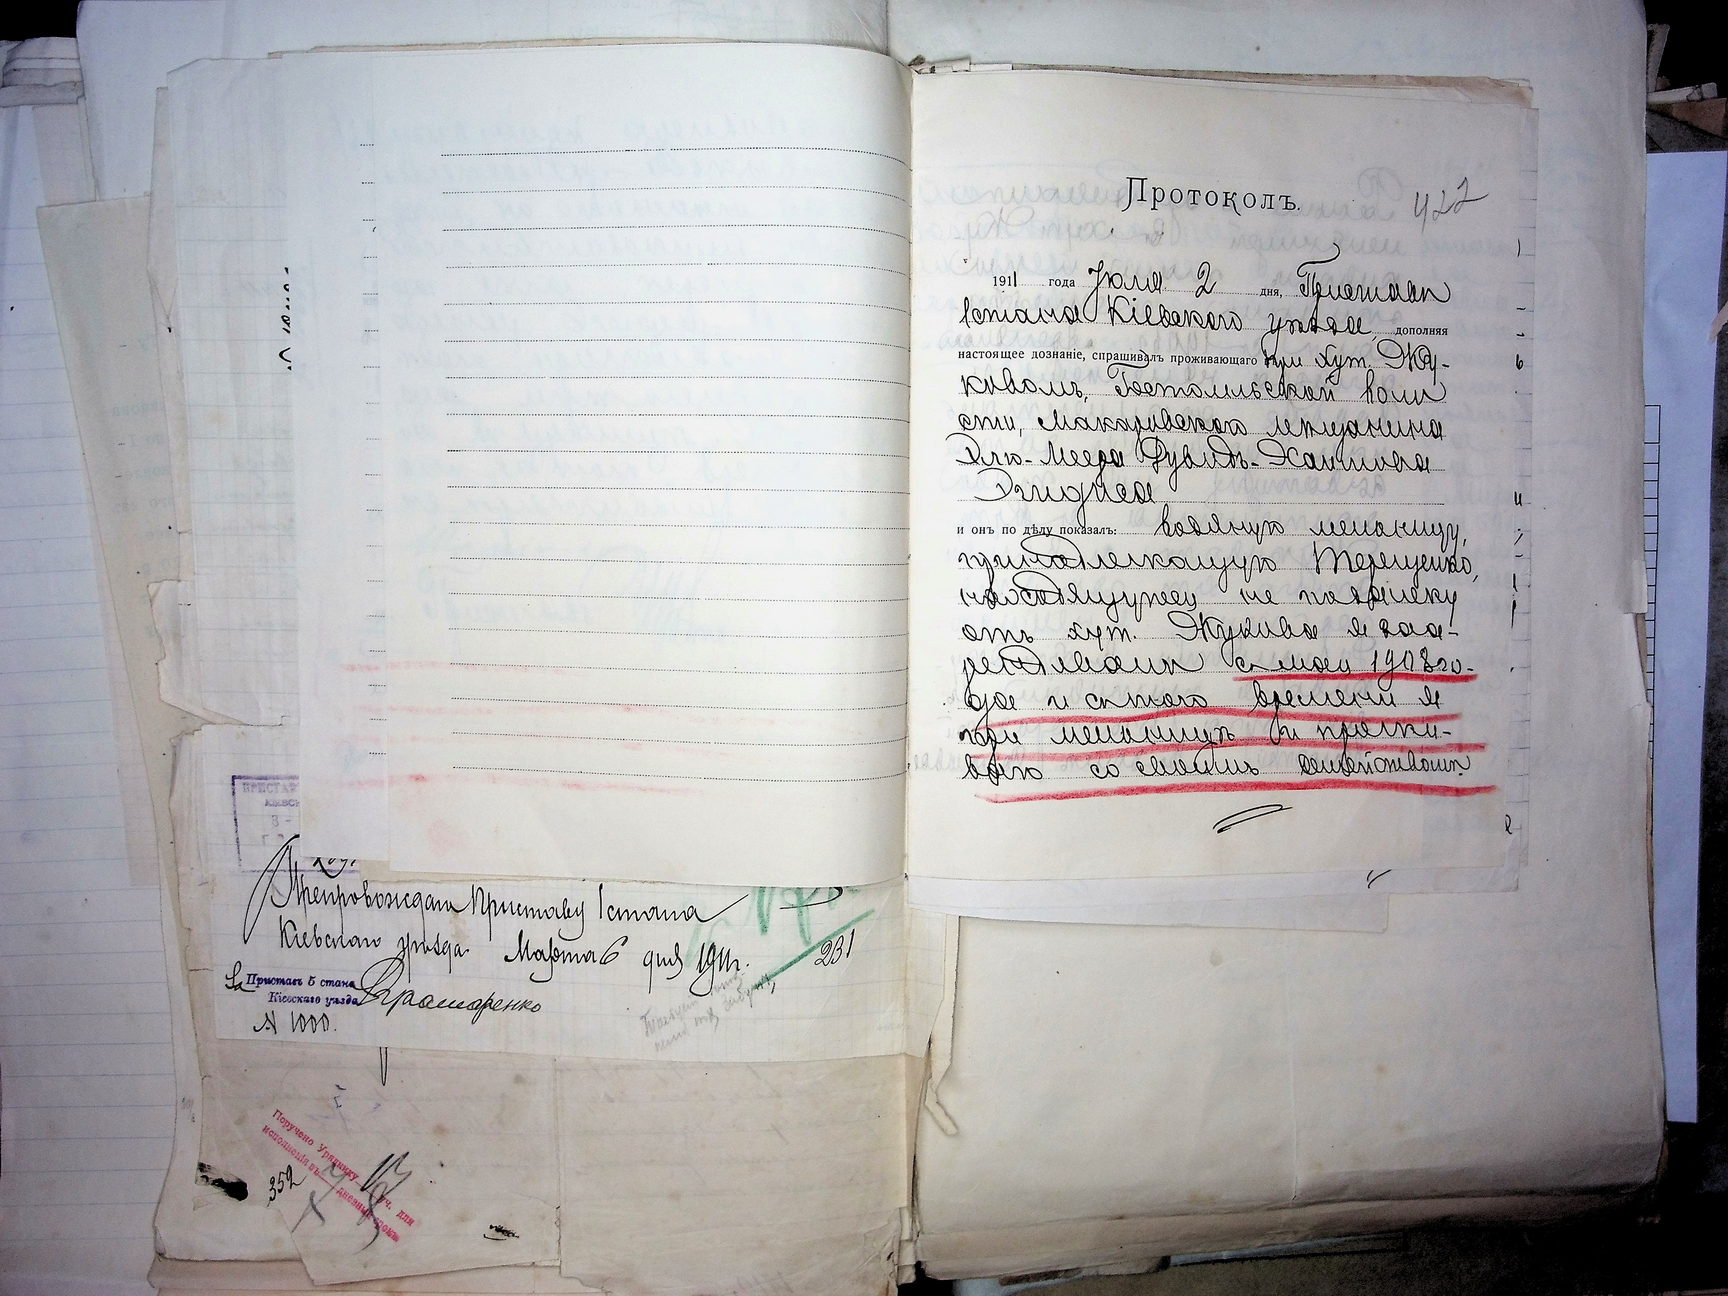 Протоколъ.
422
1911 года Іюля 2 дня, Приставъ
1 стана Кіевскаго уѣзда, дополняя
настоящее дознаніе, спрашивалъ проживающаго при хут. Жу-
ковомъ, Гостомльской воло
сти, Макаровскаго мещанина
Меера Рувидъ-
и онъ по дѣлу показалъ: водяную мельницу,
принадлежащую Терещенко,
находящуюся не подалеку
отъ хут. Жукова я заа-
рендовалъ съ мая 1908 го-
да и съ того времени я
при мельницѣ и прожи-
ваю со своимъ семействомъ.
ПРИСТАВ
КІЕВСК
Препровождаю Приставу 1 стана
Кіевскаго уѣзда. Марта 6 дня 1911 г.
231
За Приставъ 5 стана
Кіевскаго уѣзда
N 1000.
Поручено Уряднику уч. для
исполненія въ дневный срокъ
352